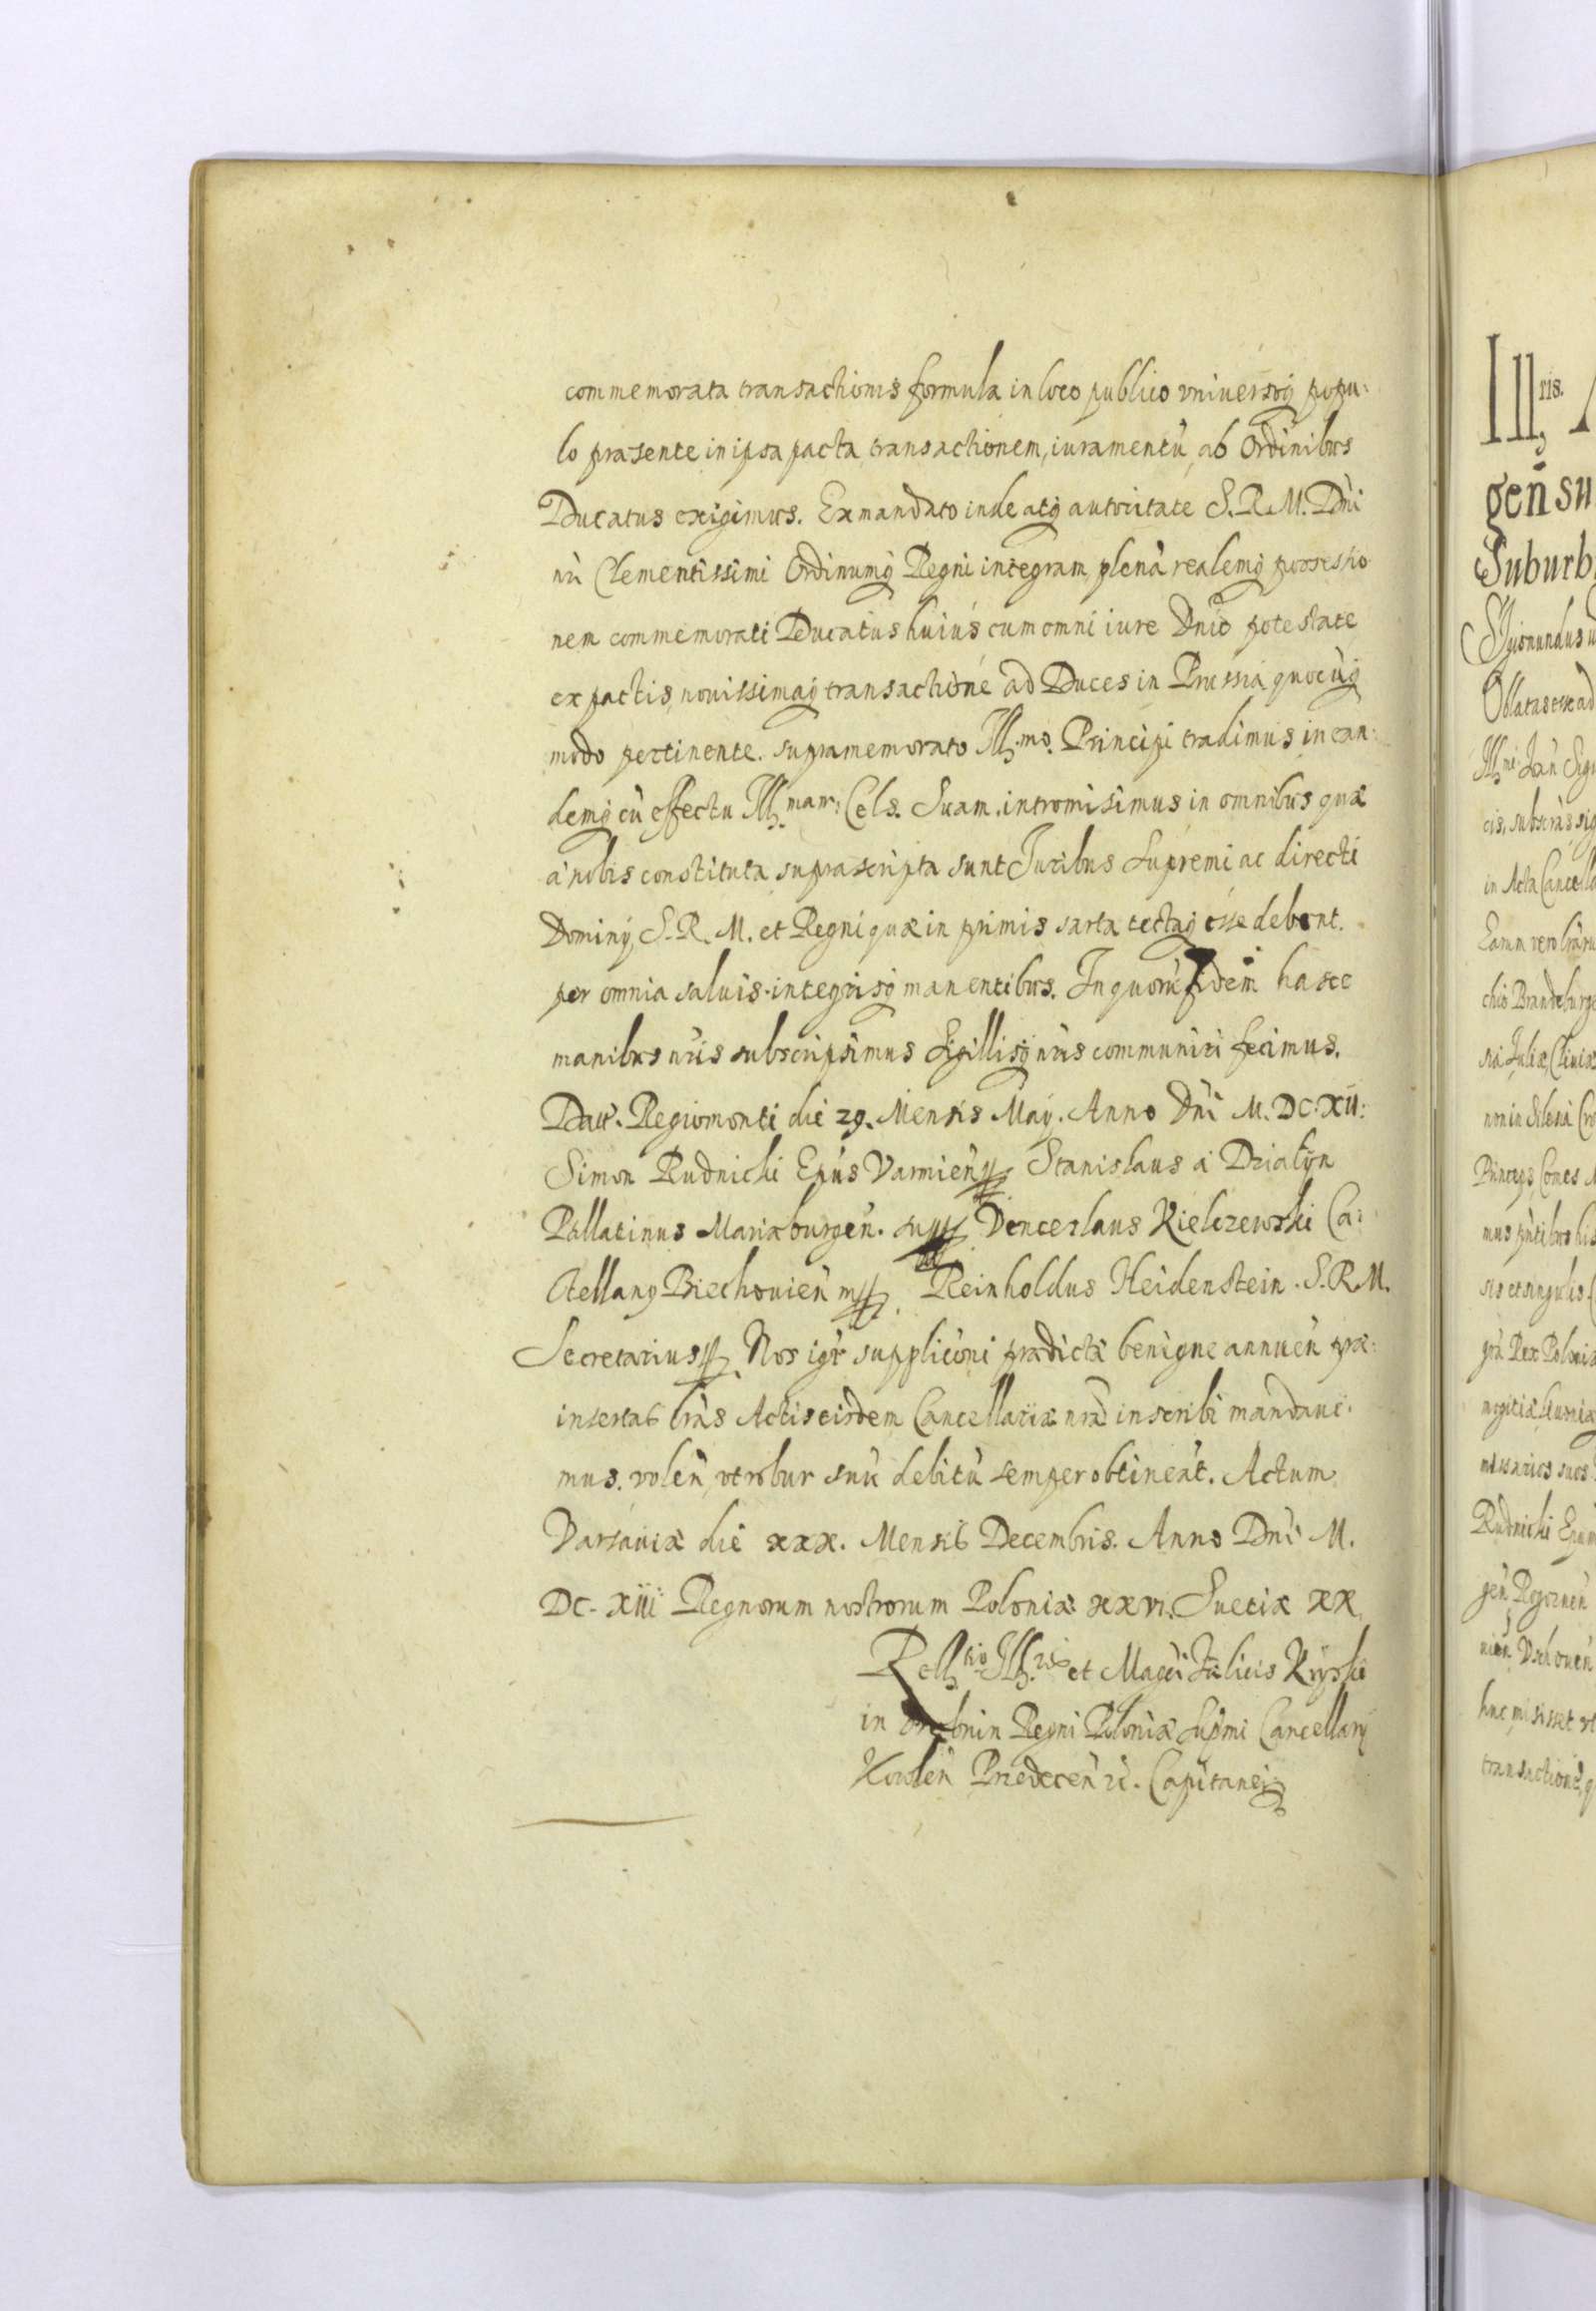 commemorata transactionis formula in loco publico vniversoq popu:
lo præsente in ipsa pacta, transactionem, iuramentũ, ab Ordinibus
Ducatus exigimus. Ex mandato inde atq autoritate S. R. M. Dni
nri Clementissimi Ordinumq Regni integram plenã realemq possessio
nem commemorati Ducatus huius cum omni iure Dnio potestate
ex pactis, nouissimaq transactione ad Duces in Prussia quocũq
modo pertinente. supramemorato Illmo. Principi tradimus in ean:
demq cũ effectu Illmam: Cels. Suam. intromisimus in omnibus quæ
à nobis constituta suprascripta sunt Juribus Supremi ac directi
Dominÿ S. R. M. et Regni quæ in primis sarta tectaq esse debent.
per omnia saluis integrisq manentibus. In quorũ fidem hasce
manibus nris subscripsimus Sigillisq nris communiri fecimus.
Datt. Regiomonti die 29. Mensis Maÿ. Anno Dni M. DC. XII:
Simon Rudnicki Epus Varmieñ Stanislaus à Dzialÿn
Pallatinus Mariæburgeñ. Venceslaus Kielczewski Ca:
stellanq Biechouieñ mp. Reinholdus Heidenstein. S. R. M.
Secretarius Nos igr supplicõni prædictæ benigne annueñ præ:
insertas lras Actis eisdem Cancellariæ nræ inscribi mandaui:
mus. voleñ, vt robur suũ debitũ semper obtineãt. Actum
Varsauiæ die xxx. Mensis Decembris. Anno Dni M.
DC. XIII Regnorum nostrorum Poloniæ xxvi. Suetiæ xx
Rellio Illris et Magci Fælicis Krÿski
in Drobnin Regni Poloniæ Supmi Cancellarÿ
Koloeñ Przedeceñ Capitanei
Ill,ris.
geñ su
Suburb
Sigismundus
Oblatas esse ad
Illmi Ioan Sigi
cis, subscras sig
in Acta Cancella
Earum vero lrãru
chio Brandeburge
sia Juliæ, Cliuiæ
non in Silesia Cro
Princeps Comes
mus pñtibus his
sis et singulis
gra Rex Poloniæ
mogitiæ Liuoniæ
missarios suos
Rudnicki Epum
geñ Rogozneñ
nieñ Vschoueñ
huc misisset vt
transactione, q